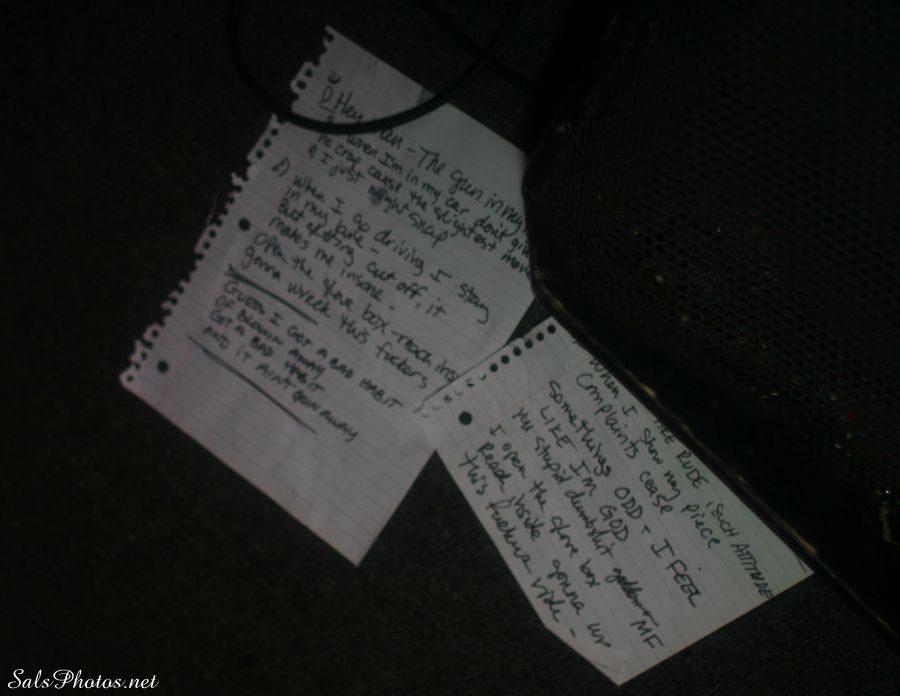 1) Hey man - The gun in my
& when I'm in my car don't give
no crap cause the slightest move
& I just might snap
2) When I go driving I stay
in my lane -
But getting cut off, it
makes me insane -
open the glove box - reach ins
gonna wreck this fuckers
GUESS I GOT A BAD HABIT
OF BLOWIN AWAY
GOT A BAD HABIT
AND IT AINT GOIN AWAY
When I RUDE & SUCH ATTITUDE
I show my piece
Complaints cease
somethings ODD - I FEEL
LIKE I'M GOD
you stupid dumbshit MF
I open the glove box
Reach inside gonna wr
this fuckers ride -
SalsPhotos.net